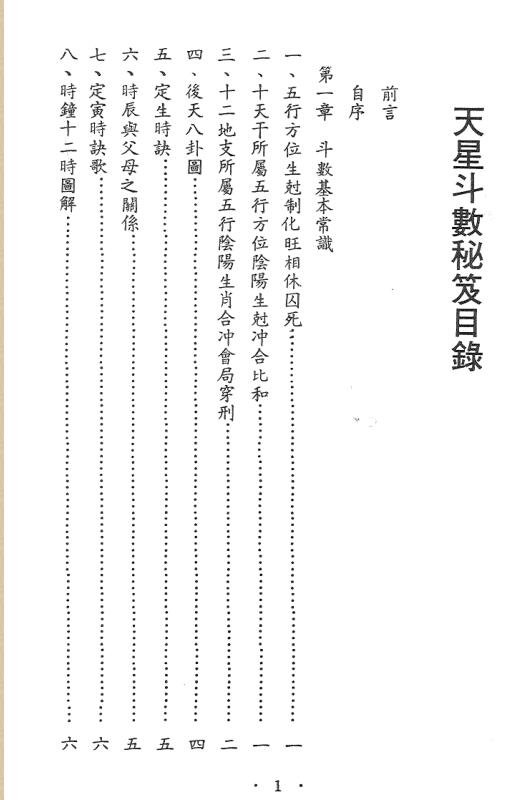 天星斗數秘笈目錄
前言
自序
第一章 斗數基本常識
一、五行方位生尅制化旺相休囚死……一
二、十天干所屬五行方位陰陽生尅冲合比和……一
三、十二地支所屬五行陰陽生肖合冲會局穿刑……二
四、後天八卦圖……四
五、定生時訣……五
六、時辰與父母之關係……五
七、定寅時訣歌……六
八、時鐘十二時圖解……六
· 1 ·